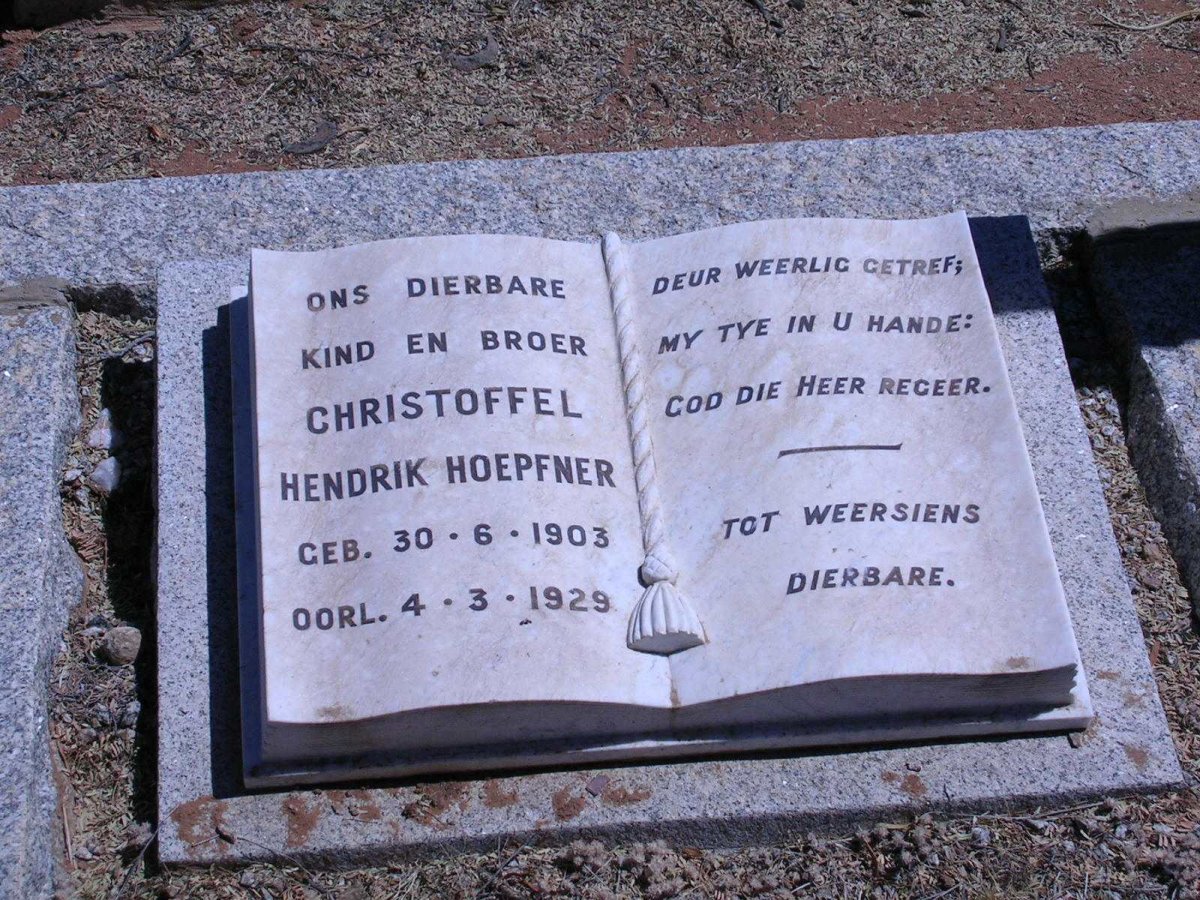 ONS DIERBARE
KIND EN BROER
CHRISTOFFEL
HENDRIK HOEPFNER
GEB. 30 · 6 · 1903
OORL. 4 · 3 · 1929
DEUR WEERLIG GETREF;
MY TYE IN U HANDE:
GOD DIE HEER REGEER.
TOT WEERSIENS
DIERBARE.